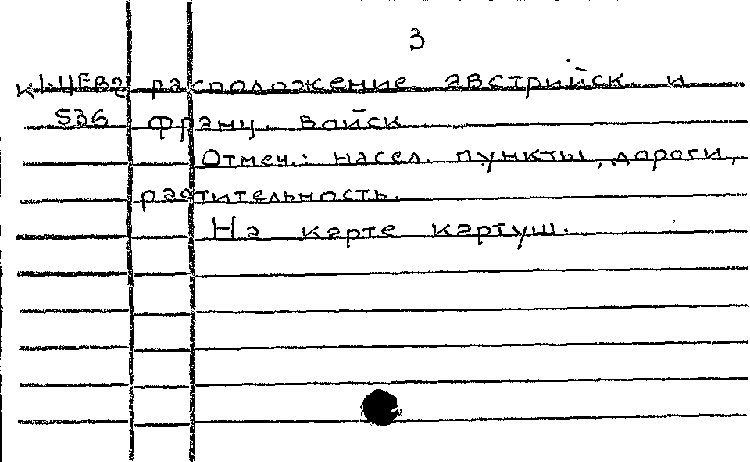 3
расположение австрийск. и
536 франц. войск.
Отмеч.: насел. пункты, дороги,
растительность.
На карте картуш.